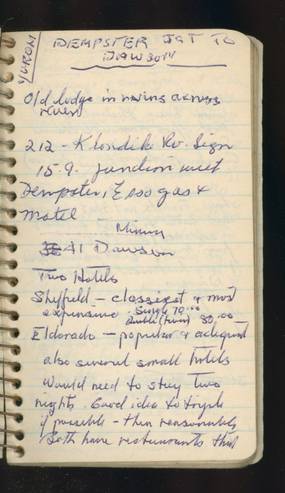 YUKON
DEMPSTER JCT TO
DAWSON
Old lodge in ruins across
river
212 - Klondike Rv. Sign
15.9. junction with
Dempster, Esso gas +
motel
41 Dawson
Two Hotels
Sheffield - classiest + most
expensive - Single 70.00
Double (twin) 80.00
Eldorado - popular + adequate
also several small hotels
Would need to stay two
nights. Good idea to triple
if possible - then reasonable
Both have restaurants that